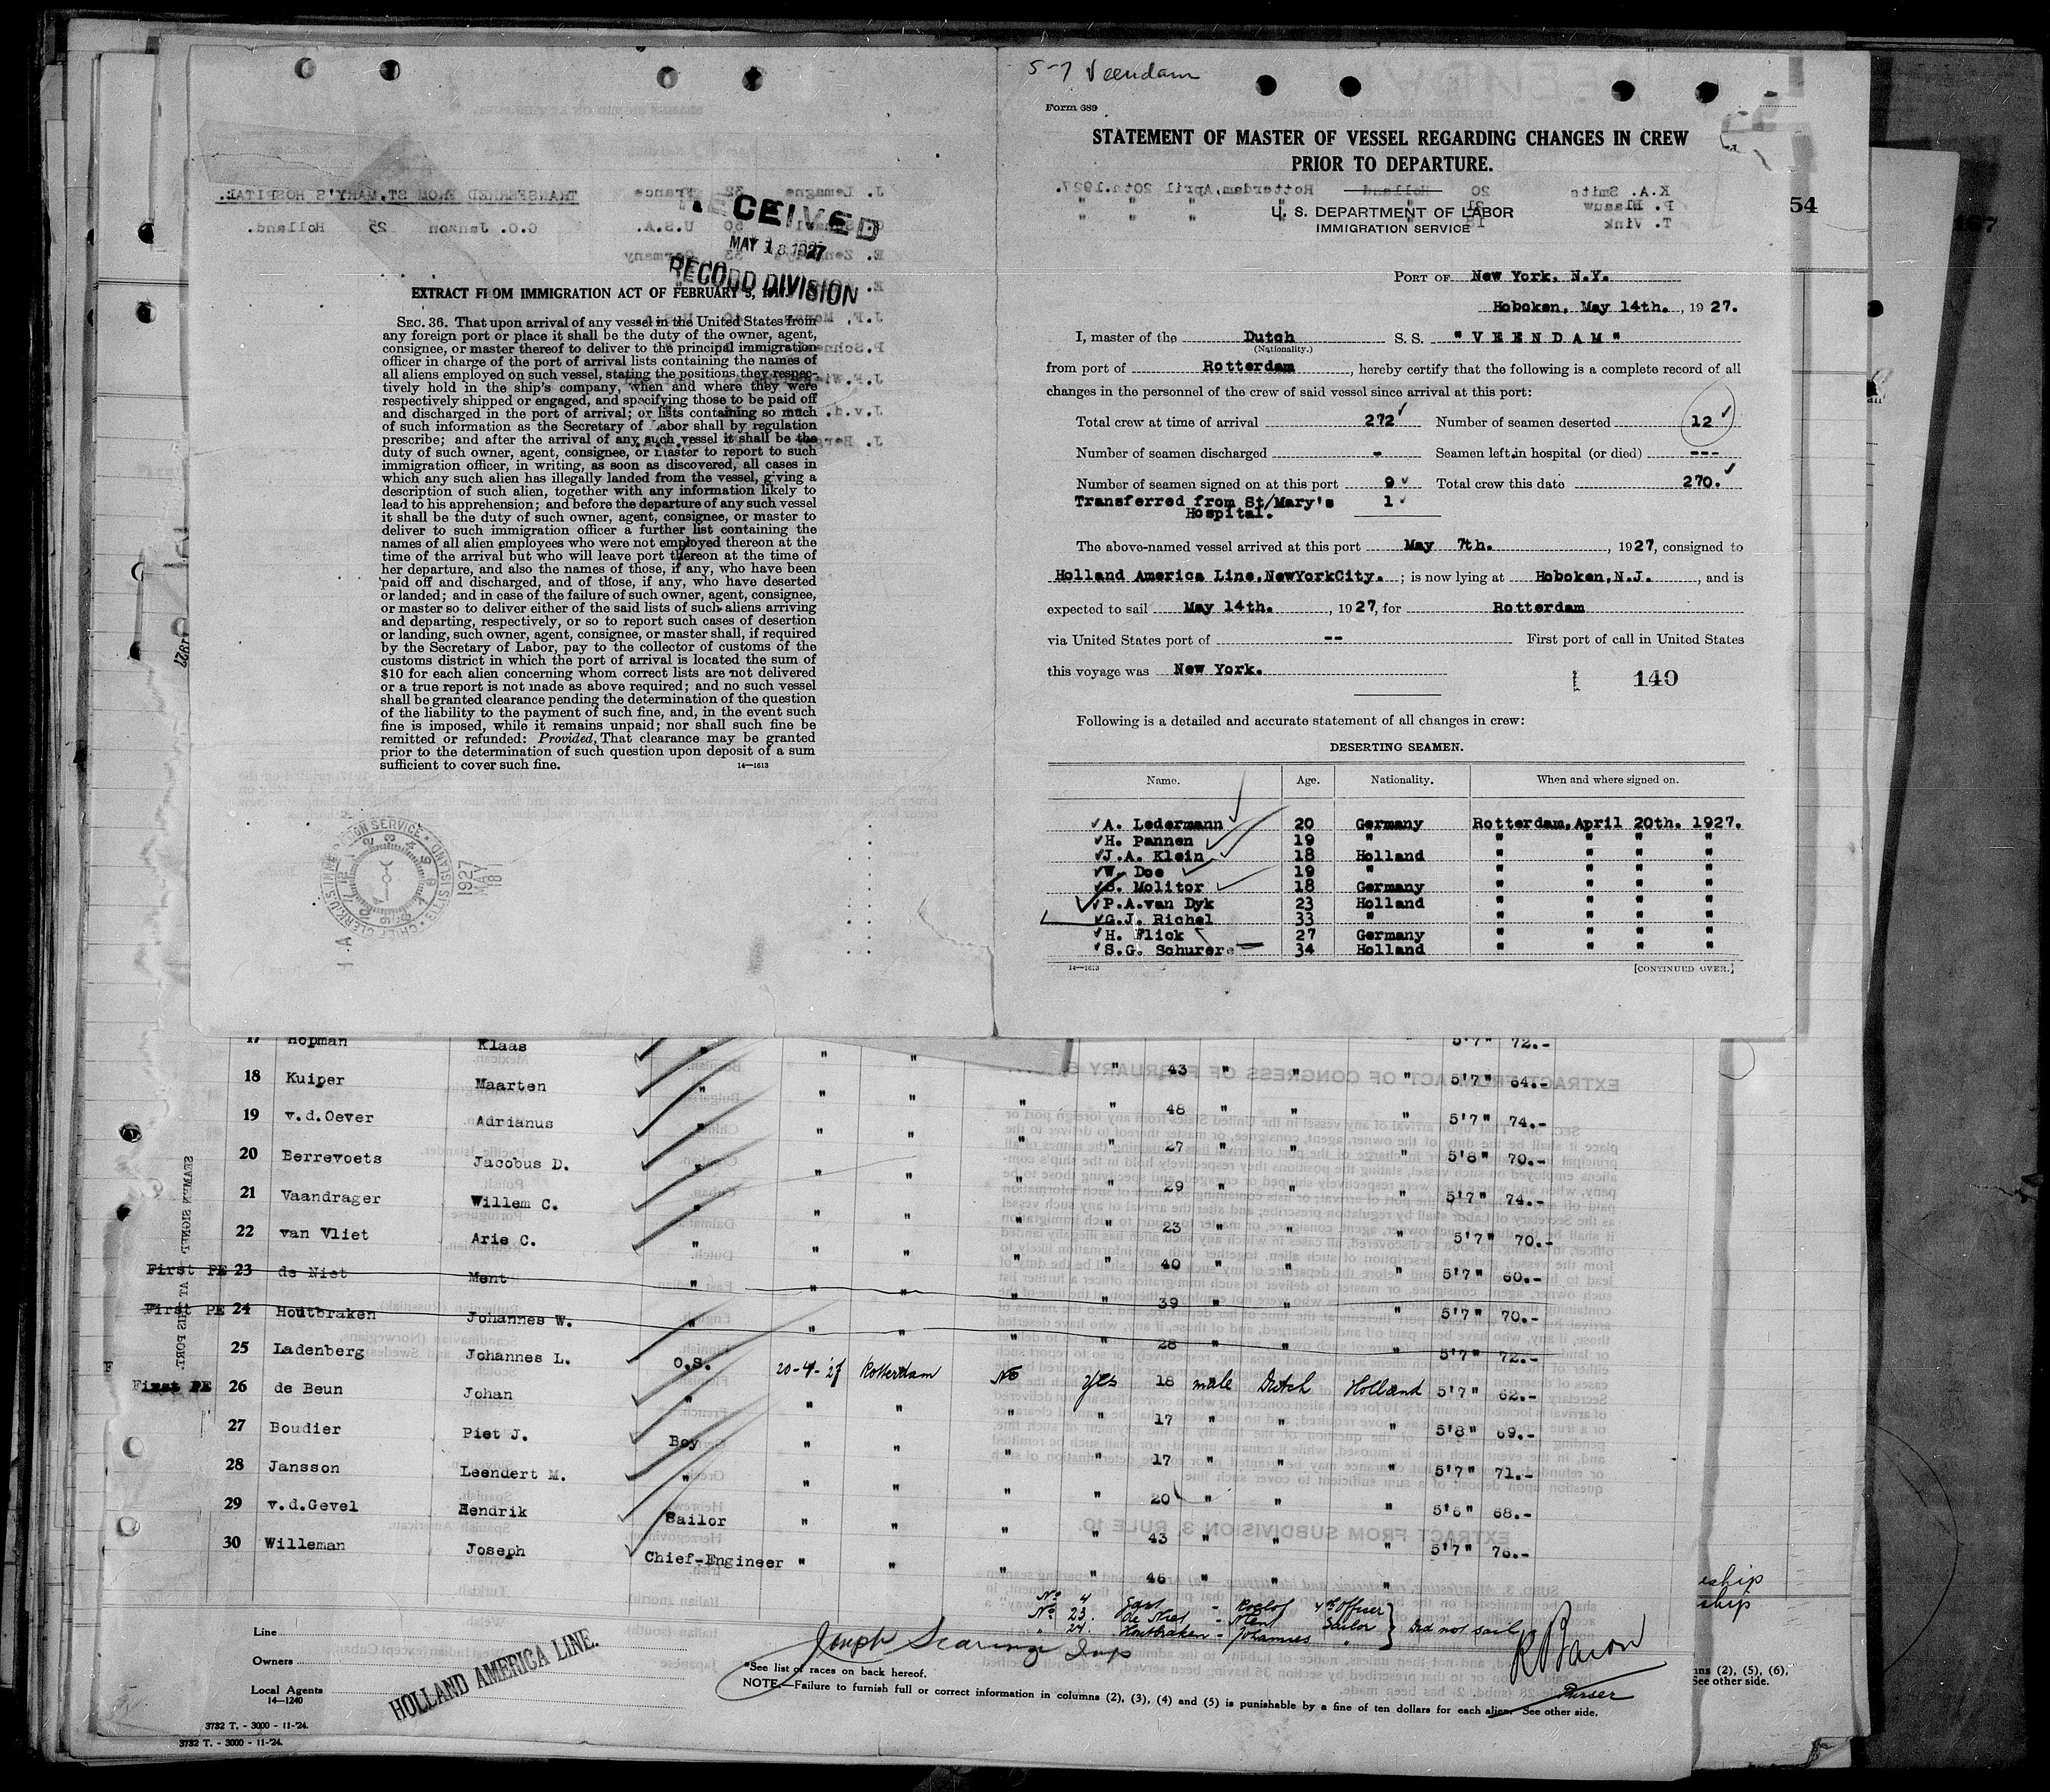 5-7 Veendam
Form 689
STATEMENT OF MASTER OF VESSEL REGARDING CHANGES IN CREW
PRIOR TO DEPARTURE.
54
U. S. DEPARTMENT OF LABOR
IMMIGRATION SERVICE
PORT OF New York, N.Y.
Hoboken, May 14th. , 1927.
I, master of the Dutch S. S. "VEENDAM"
(Nationality.)
from port of Rotterdam , hereby certify that the following is a complete record of all
changes in the personnel of the crew of said vessel since arrival at this port:
Total crew at time of arrival 272 Number of seamen deserted 12
Number of seamen discharged - Seamen left in hospital (or died) ---
Number of seamen signed on at this port 9 Total crew this date 270.
Transferred from St/Mary's 1
Hospital.
The above-named vessel arrived at this port May 7th. , 1927, consigned to
Holland America Line, NewYorkCity. ; is now lying at Hoboken, N.J. , and is
expected to sail May 14th. , 1927, for Rotterdam
via United States port of -- First port of call in United States
this voyage was New York.
149
Following is a detailed and accurate statement of all changes in crew:
DESERTING SEAMEN.
Name. Age. Nationality. When and where signed on.
A. Ledermann 20 Germany Rotterdam, April 20th. 1927.
H. Pannen 19 " " " " "
J.A. Klein 18 Holland " " " "
W. Doe 19 " " " " "
Molitor 18 Germany " " " "
P.A. van Dyk 23 Holland " " " "
G.J. Richel 33 " " " " "
H. Flick 27 Germany " " " "
S.G. Schurere 34 Holland " " " "
14—1613 [CONTINUED OVER.]
RECEIVED
MAY 18 1927
RECORD DIVISION
EXTRACT FROM IMMIGRATION ACT OF FEBRUARY 5,
SEC. 36. That upon arrival of any vessel in the United States from
any foreign port or place it shall be the duty of the owner, agent,
consignee, or master thereof to deliver to the principal immigration
officer in charge of the port of arrival lists containing the names of
all aliens employed on such vessel, stating the positions they respec-
tively hold in the ship's company, when and where they were
respectively shipped or engaged, and specifying those to be paid off
and discharged in the port of arrival; or lists containing so much
of such information as the Secretary of Labor shall by regulation
prescribe; and after the arrival of any such vessel it shall be the
duty of such owner, agent, consignee, or master to report to such
immigration officer, in writing, as soon as discovered, all cases in
which any such alien has illegally landed from the vessel, giving a
description of such alien, together with any information likely to
lead to his apprehension; and before the departure of any such vessel
it shall be the duty of such owner, agent, consignee, or master to
deliver to such immigration officer a further list containing the
names of all alien employees who were not employed thereon at the
time of the arrival but who will leave port thereon at the time of
her departure, and also the names of those, if any, who have been
paid off and discharged, and of those, if any, who have deserted
or landed; and in case of the failure of such owner, agent, consignee,
or master so to deliver either of the said lists of such aliens arriving
and departing, respectively, or so to report such cases of desertion
or landing, such owner, agent, consignee, or master shall, if required
by the Secretary of Labor, pay to the collector of customs of the
customs district in which the port of arrival is located the sum of
$10 for each alien concerning whom correct lists are not delivered
or a true report is not made as above required; and no such vessel
shall be granted clearance pending the determination of the question
of the liability to the payment of such fine, and, in the event such
fine is imposed, while it remains unpaid; nor shall such fine be
remitted or refunded: Provided, That clearance may be granted
prior to the determination of such question upon deposit of a sum
sufficient to cover such fine. 14—1613
1927 MAY 18
17 Hopman Klaas " " " 5'7" 72.-
18 Kuiper Maarten " " " " 43 " " " 5'7" 64.-
19 v.d.Oever Adrianus " " " " " 48 " " " 5'7" 74.-
20 Berrevoets Jacobus D. " " " " " 27 " " " 5'8" 70.-
21 Vaandrager Willem C. " " " " 29 " " " 5'7" 74.-
22 van Vliet Arie C. " " " " " 23 " " " 5'7" 70.-
First PE 23 de Niet Ment " " " " " 40 " " " 5'7" 60.-
First PE 24 Houtbraken Johannes W. " " " " " 39 " " " 5'7" 70.-
25 Ladenberg Johannes L. O.S. " " " " 28 " " " 5'7" 72.-
First PE 26 de Beun Johan " 20-4-'27 Rotterdam No yes 18 male Dutch Holland 5'7" 62.-
27 Boudier Piet J. Boy " " " " 17 " " " 5'8" 69.-
28 Jansson Leendert M. " " " " " 17 " " " 5'7" 71.-
29 v.d.Gevel Hendrik Sailor " " " " 20 " " " 5'6" 68.-
30 Willeman Joseph Chief-Engineer " " " " 43 " " " 5'7" 76.-
" " 46 " " "
No 4 Roelof 4th Officer
No 23. de Niet - Ment Sailor
" 24. Houtbraken - Johannes " } Did not sail
Line
Owners
Local Agents
14—1240
HOLLAND AMERICA LINE.
Joseph Insp
*See list of races on back hereof.
NOTE.—Failure to furnish full or correct information in columns (2), (3), (4) and (5) is punishable by a fine of ten dollars for each alien. See other side.
Purser
3732 T. - 3000 - 11-'24.
3732 T. - 3000 - 11-'24.
(2), (5), (6),
See other side.